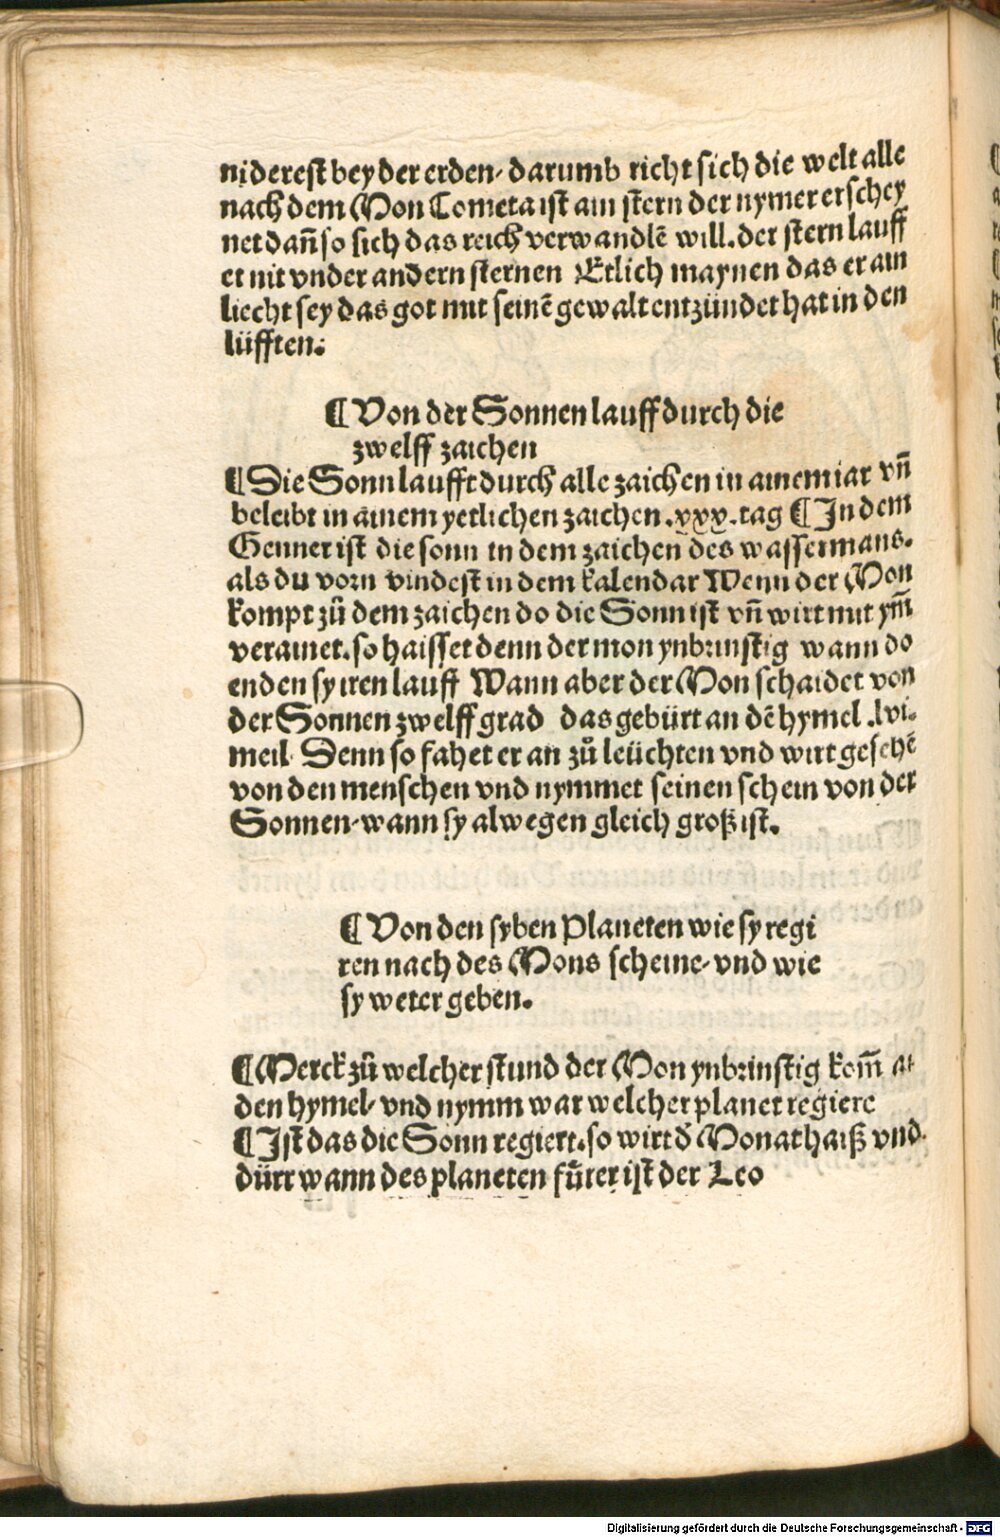 niderest bey der erden, darumb richt sich die welt alle
nach dem Mon Cometa ist ain stern der nymer erschey
net dañ so sich das reich verwandlē will. der stern lauff
et nit vnder andern sternen Etlich maynen das er ain
liecht sey das got mit seinē gewalt entzündet hat in den
lüfften.
¶ Von der Sonnen lauff durch die
zwelff zaichen
¶ Die Sonn laufft durch alle zaichen in ainem iar vñ
beleibt in ainem yetlichen zaichen .xxx. tag ¶ In dem
Genner ist die sonn in dem zaichen des wassermans.
als du vorn vindest in dem kalendar Wenn der Mon
kompt zů dem zaichen do die Sonn ist vñ wirt mit ym̄
verainet. so haisset denn der mon ynbrinstig wann do
enden sy iren lauff Wann aber der Mon schaidet von
der Sonnen zwelff grad das gebürt an dē hymel .lvi.
meil. Denn so fahet er an zů leüchten vnd wirt gesehē
von den menschen vnd nymmet seinen schein von der
Sonnen, wann sy alwegen gleich groß ist.
¶ Von den syben Planeten wie sy regi
ren nach des Mons scheine, vnd wie
sy weter geben.
¶ Merck zů welcher stund der Mon ynbrinstig kom̄ an
den hymel, vnd nymm war welcher planet regiere
¶ Ist das die Sonn regiert. so wirt d̕ Monat haiß vnd
dürr wann des planeten fürer ist der Leo
Digitalisierung gefördert durch die Deutsche Forschungsgemeinschaft - DFG